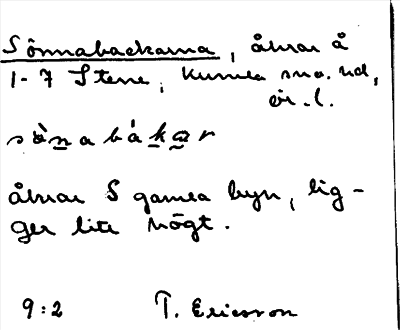 Sönnabackarna, åkrar å
1-7 Stene, Kumla sn o. hd,
Ör. l.
sö̀nabákar
åkrar S gamla byn, lig-
ger lite högt.
9:2 T. Ericsson